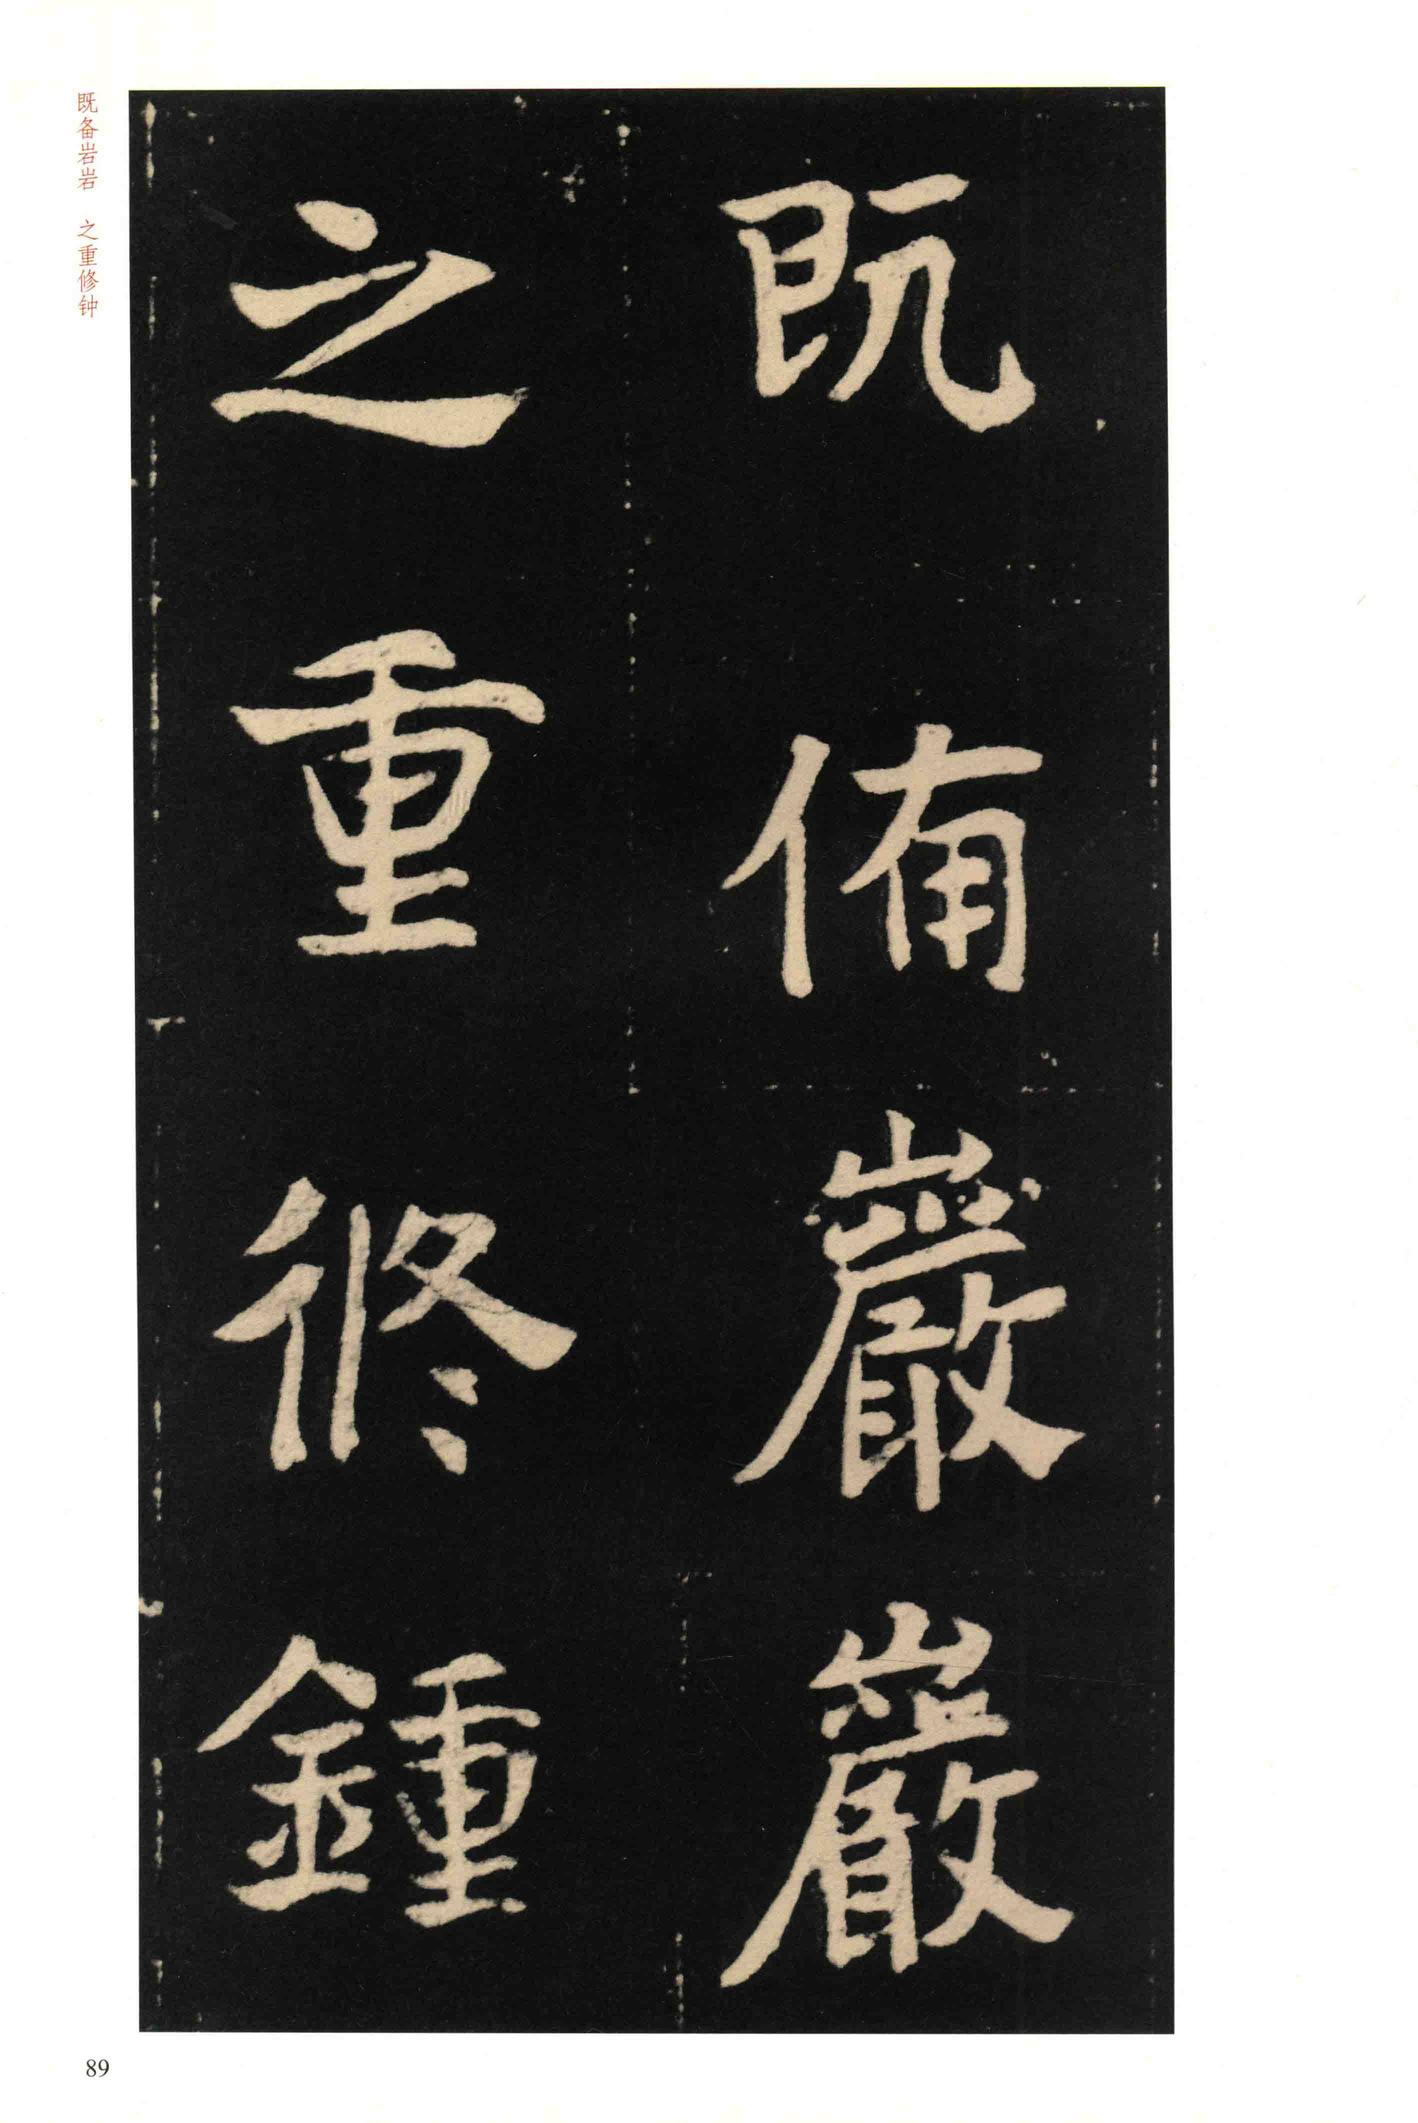 既俻巖巖
之重修鍾
既备岩岩　之重修钟
89